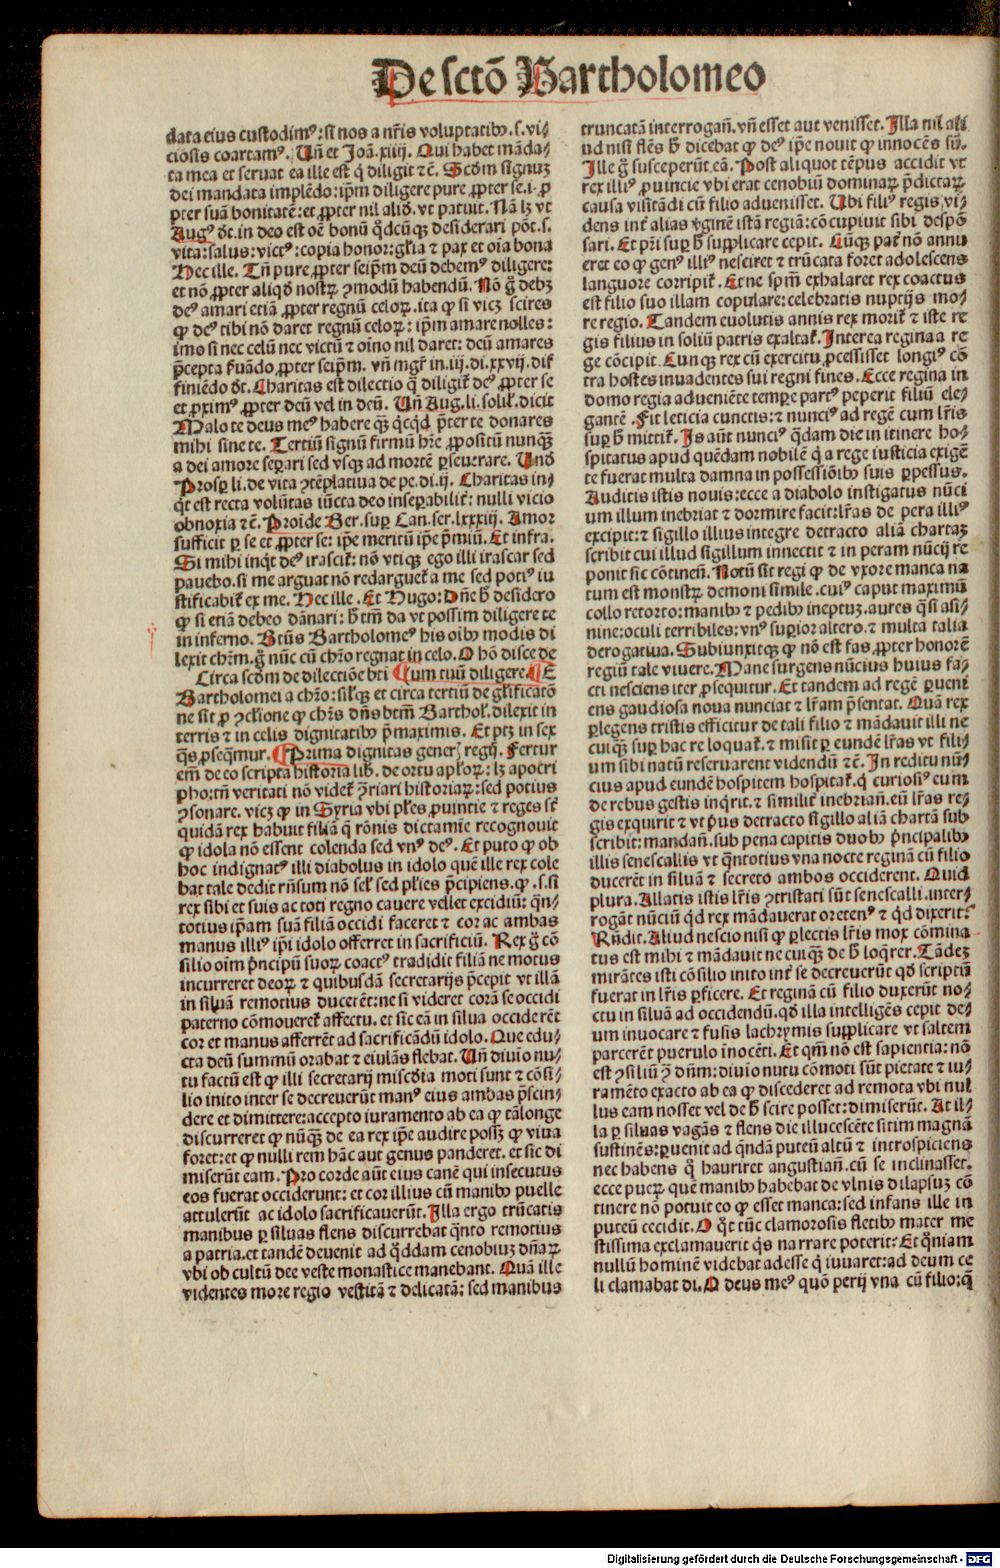 De sctō Bartholomeo
data eius custodimꝰ: si nos a nr̄is voluptatibꝰ .s. vi/
ciosis coartamꝰ. Un̄ et Joā. xiiij. Qui habet māda/
ta mea et servat ea ille est q̄ diligit ⁊c̄. Scd̄m signuz
dei mandata implēdo: ip̄m diligere pure ꝓpter se .i. ꝓ
pter suā bonitatē: et ꝓpter nil aliđ. vt patuit. Nā lꝫ vt
Augꝰ đt. in deo est oē bonū qđcūqꝫ desiderari pōt .s.
vita: salus: victꝰ: copia honor: gl̄ia ⁊ pax et oīa bona
Hec ille. Tn̄ pure ꝓpter seip̄m deū debemꝰ diligere:
et nō ꝓpter aliqđ nostrꝝ ꝯmodū habendū. Nō g̊ debꝫ
deꝰ amari etiā ꝓpter regnū celoꝝ. ita ꝙ si vicꝫ scires
ꝙ deꝰ tibi nō daret regnū celoꝝ: ip̄m amare nolles:
imo si nec celū nec victū ⁊ oīno nil daret: deū amares
p̄cepta ẜuādo ꝓpter seip̄m. vn̄ mgr̄ in .iij. di. xxvij. dif
finiēdo đt. Charitas est dilectio q̄ diligit̄ deꝰ ꝓpter se
et ꝓximꝰ ꝓpter deū vel in deū. Un̄ Aug. li. solil̄. dicit
Malo te deus meꝰ habere qꝫ̄ qc̄qđ p̄ter te donares
mihi sine te. Tertiū signū firmū hr̄e ꝓpositū nunqꝫ̄
a dei amore separi sed vsqꝫ ad mortē ꝑseuerare. Und
Prosꝑ li. de vita ꝯtēplatiua de pe. di. ij. Charitas in/
qt̄ est recta volūtas iūcta deo insepabilit̄: nulli vicio
obnoxia ⁊c̄. Proīde Ber. suꝑ Can. ser. lxxxiij. Amor
sufficit ꝑ se et ꝓpter se: ip̄e meritū ip̄e p̄miū. Et infra.
Si mihi inqt̄ deꝰ irascit̄: nō vtiqꝫ ego illi irascar sed
pauebo. si me arguat nō redarguet̄ a me sed potiꝰ iu
stificabit̄ ex me. Hec ille. Et Hugo: Dn̄e h̄ desidero
ꝙ si etiā debeo dānari: h̄ tm̄ da vt possim diligere te
in inferno. Btūs Bartholomeꝰ his oībꝰ modis di
lexit chr̄m. g̊ nūc cū chr̄o regnat in celo. O hō disce de
Circa scd̄m de dilectiōe bti ¶ Cum tuū diligere. ¶ E
Bartholomei a chr̄o: sil̄qꝫ et circa tertiū de gl̄ificatō
ne sit ꝓ ꝯclusione ꝙ chr̄s dn̄s btm̄ Barthol̄. dilexit in
terris ⁊ in celis dignitatibꝰ p̄maximis. Et ptꝫ in sex
qs̄ ꝑseqmur. ¶ Prima dignitas gener̄ꝫ regij. Fertur
em̄ de eo scripta historia lib. de ortu apl̄oꝝ: lꝫ apocri
pho: tn̄ veritati nō videt̄ ꝯrariari historiaꝝ: sed potius
ꝯsonare. vicꝫ ꝙ in Syria vbi pl̄es ꝓuintie ⁊ reges st̄
quidā rex habuit filiā q̄ rōnis dictamīe recognouit
ꝙ idola nō essent colenda sed vnꝰ deꝰ. Et puto ꝙ ob
hoc indignatꝰ illi diabolus in idolo quē ille rex cole
bat tale dedit rn̄sum nō sel̄ sed pl̄ies p̄cipiens. ꝙ .s. si
rex sibi et suis ac toti regno cavere vellet excidiū: qn̄/
totius ip̄am suā filiā occidi faceret ⁊ cor ac ambas
manus illiꝰ ip̄i idolo offerret in sacrificiū. Rex g̊ cō
silio oīm p̄ncipū suoꝝ coactꝰ tradidit filiā ne motus
incurreret deoꝝ ⁊ quibusdā secretarijs p̄cepit vt illā
in silvā remotius ducerēt: ne si videret corā se occidi
paterno cōmoueret̄ affectu. et sic eā in silua occiderēt
cor et manus afferrēt ad sacrificādū idolo. Que edu/
cta deū summū orabat ⁊ eiulās flebat. Un̄ diuīo nu/
tu factū est ꝙ illi secretarij misc̄dia moti sunt ⁊ cōsi/
lio inito inter se decreuerūt manꝰ eius ambas p̄scin/
dere et dimittere: accepto iuramento ab ea ꝙ tālonge
discurreret ꝙ nūqꝫ̄ de ea rex ip̄e audire possꝫ ꝙ viua
foret: et ꝙ nulli rem hāc aut genus panderet. et sic di
miserūt eam. Pro corde aūt eius canē qui insecutus
eos fuerat occiderunt: et cor illius cū manibꝰ puelle
attulerūt ac idolo sacrificauerūt. Illa ergo trūcatis
manibus ꝑ siluas flens discurrebat qn̄to remotius
a patria. et tandē deuenit ad qđdam cenobiuꝫ dn̄aꝝ
vbi ob cultū dee veste monastice manebant. Quā ille
videntes more regio vestitā ⁊ delicatā: sed manibus
truncatā interrogan̄. vn̄ esset aut venisset. Illa nil ali
ud nisi flēs h̄ dicebat ꝙ deꝰ ip̄e nouit ꝙ innocēs sū.
Ille g̊ susceperūt eā. Post aliquot tēpus accidit vt
rex illiꝰ ꝓuincie vbi erat cenobiū dominaꝝ p̄dictaꝝ
causa visitādi cū filio aduenisset. Ubi filiꝰ regis vi/
dens int̄ alias v̄ginē istā regiā: cōcupiuit sibi despō
sari. Et pr̄i suꝑ h̄ supplicare cepit. Cūqꝫ pat̄ nō annu
eret eo ꝙ genꝰ illiꝰ nesciret ⁊ trūcata foret adolescens
languore corripit̄. Et ne sp̄m exhalaret rex coactus
est filio suo illam copulare: celebratis nuptijs mo/
re regio. Tandem euolutis annis rex morit̄ ⁊ iste re
gis filius in soliū patris exaltat̄. Interea regina a re
ge cōcipit. Cunqꝫ rex cū exercitu ꝓcessisset longiꝰ cō
tra hostes inuadentes sui regni fines. Ecce regina in
domo regia adueniēte tempe partꝰ peperit filiū ele/
gantē. Fit leticia cunctis: ⁊ nunciꝰ ad regē cum lr̄is
suꝑ h̄ mittit̄. Is aūt nunciꝰ qđam die in itinere ho/
spitatus apud quēdam nobilē q̄ a rege iusticia exigē
te fuerat multa damna in possessiōibꝰ suis ꝑpessus.
Auditis istis nouis: ecce a diabolo instigatus nūci
um illum inebriat ⁊ dormire facit: lr̄as de pera illiꝰ
excipit: ⁊ sigillo illius integre detracto aliā chartaꝫ
scribit cui illud sigillum innectit ⁊ in peram nūcij re
ponit sic cōtinen̄. Notū sit regi ꝙ de vxore manca na
tum est monstrꝝ demoni simile. cuiꝰ caput maximū
collo retorto: manibꝰ ⁊ pedibꝰ ineptuꝫ. aures qs̄i asi/
nine: oculi terribiles: vnꝰ supior altero. ⁊ multa talia
derogatiua. Subiunxitqꝫ ꝙ nō est fas ꝓpter honorē
regiū tale vivere. Mane surgens nūcius huius fa/
cti nesciens iter ꝓsequitur. Et tandem ad regē ꝑueni
ens gaudiosa noua nunciat ⁊ lr̄am p̄sentat. Quā rex
ꝑlegens tristis efficitur de tali filio ⁊ mādauit illi ne
cuiqꝫ̄ suꝑ hac re loquat̄. ⁊ misit ꝑ eundē lr̄as vt fili/
um sibi natū reservarent videndū ⁊c̄. In reditu nū/
cius apud eundē hospitem hospitat̄. q̄ curiosiꝰ eum
de rebus gestis inq̄rit. ⁊ similit̄ inebrian̄. eū lr̄as re/
gis exquirit ⁊ vt p̄us detracto sigillo aliā chartā sub
scribit: mandan̄. sub pena capitis duobꝰ p̄ncipalibꝰ
illis senescallis vt qn̄totius vna nocte reginā cū filio
ducerēt in siluā ⁊ secreto ambos occiderent. Quid
plura. Allatis istis lr̄is ꝯtristati sūt senescalli. inter/
rogāt nūciū qđ rex mādauerat oretenꝰ ⁊ qđ dixerit:
Rn̄dit. Aliud nescio nisi ꝙ ꝑlectis lr̄is mox cōmina
tus est mihi ⁊ mādauit ne cuiqꝫ̄ de h̄ loq̄rer. Tādeꝫ
mirātes isti cōsilio inito int̄ se decreuerūt qđ scriptū
fuerat in lr̄is ꝑficere. Et reginā cū filio duxerūt no/
ctu in siluā ad occidendū. qđ illa intelligēs cepit de/
um inuocare ⁊ fusis lachrymis supplicare vt saltem
parcerēt puerulo īnocēti. Et qm̄ nō est sapientia: nō
est ꝯsiliū ꝯ̄ dn̄m: diuīo nutu cōmoti sūt pietate ⁊ iu/
ramēto exacto ab ea ꝙ discederet ad remota vbi nul
lus eam nosset vel de h̄ scire posset: dimiserūt. At il/
la ꝑ siluas vagās ⁊ flens die illucescēte sitim magnā
sustinēs: ꝑuenit ad qn̄dā puteū altū ⁊ introspiciens
nec habens q̊ hauriret angustian̄. cū se inclinasset.
ecce pueꝝ quē manibꝰ habebat de vlnis dilapsuꝫ cō
tinere nō potuit eo ꝙ esset manca: sed infans ille in
puteū cecidit. O qt̄ tūc clamorosis fletibꝰ mater me
stissima exclamauerit qs̄ narrare poterit: Et qn̄iam
nullū hominē videbat adesse q̄ iuuaret: ad deum ce
li clamabat di. O deus meꝰ quō perij vna cū filio: q̄
Digitalisierung gefördert durch die Deutsche Forschungsgemeinschaft - DFG